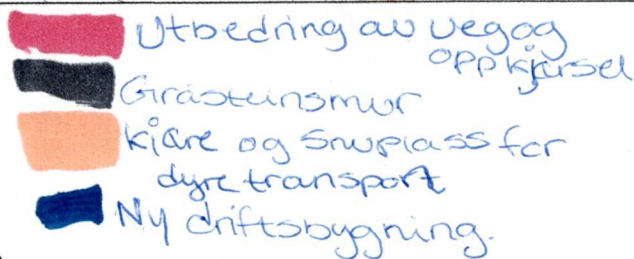 Utbedring av veg og
oppkjørsel
Gråsteinsmur
kjøre og snuplass for
dyretransport
Ny driftsbygning.